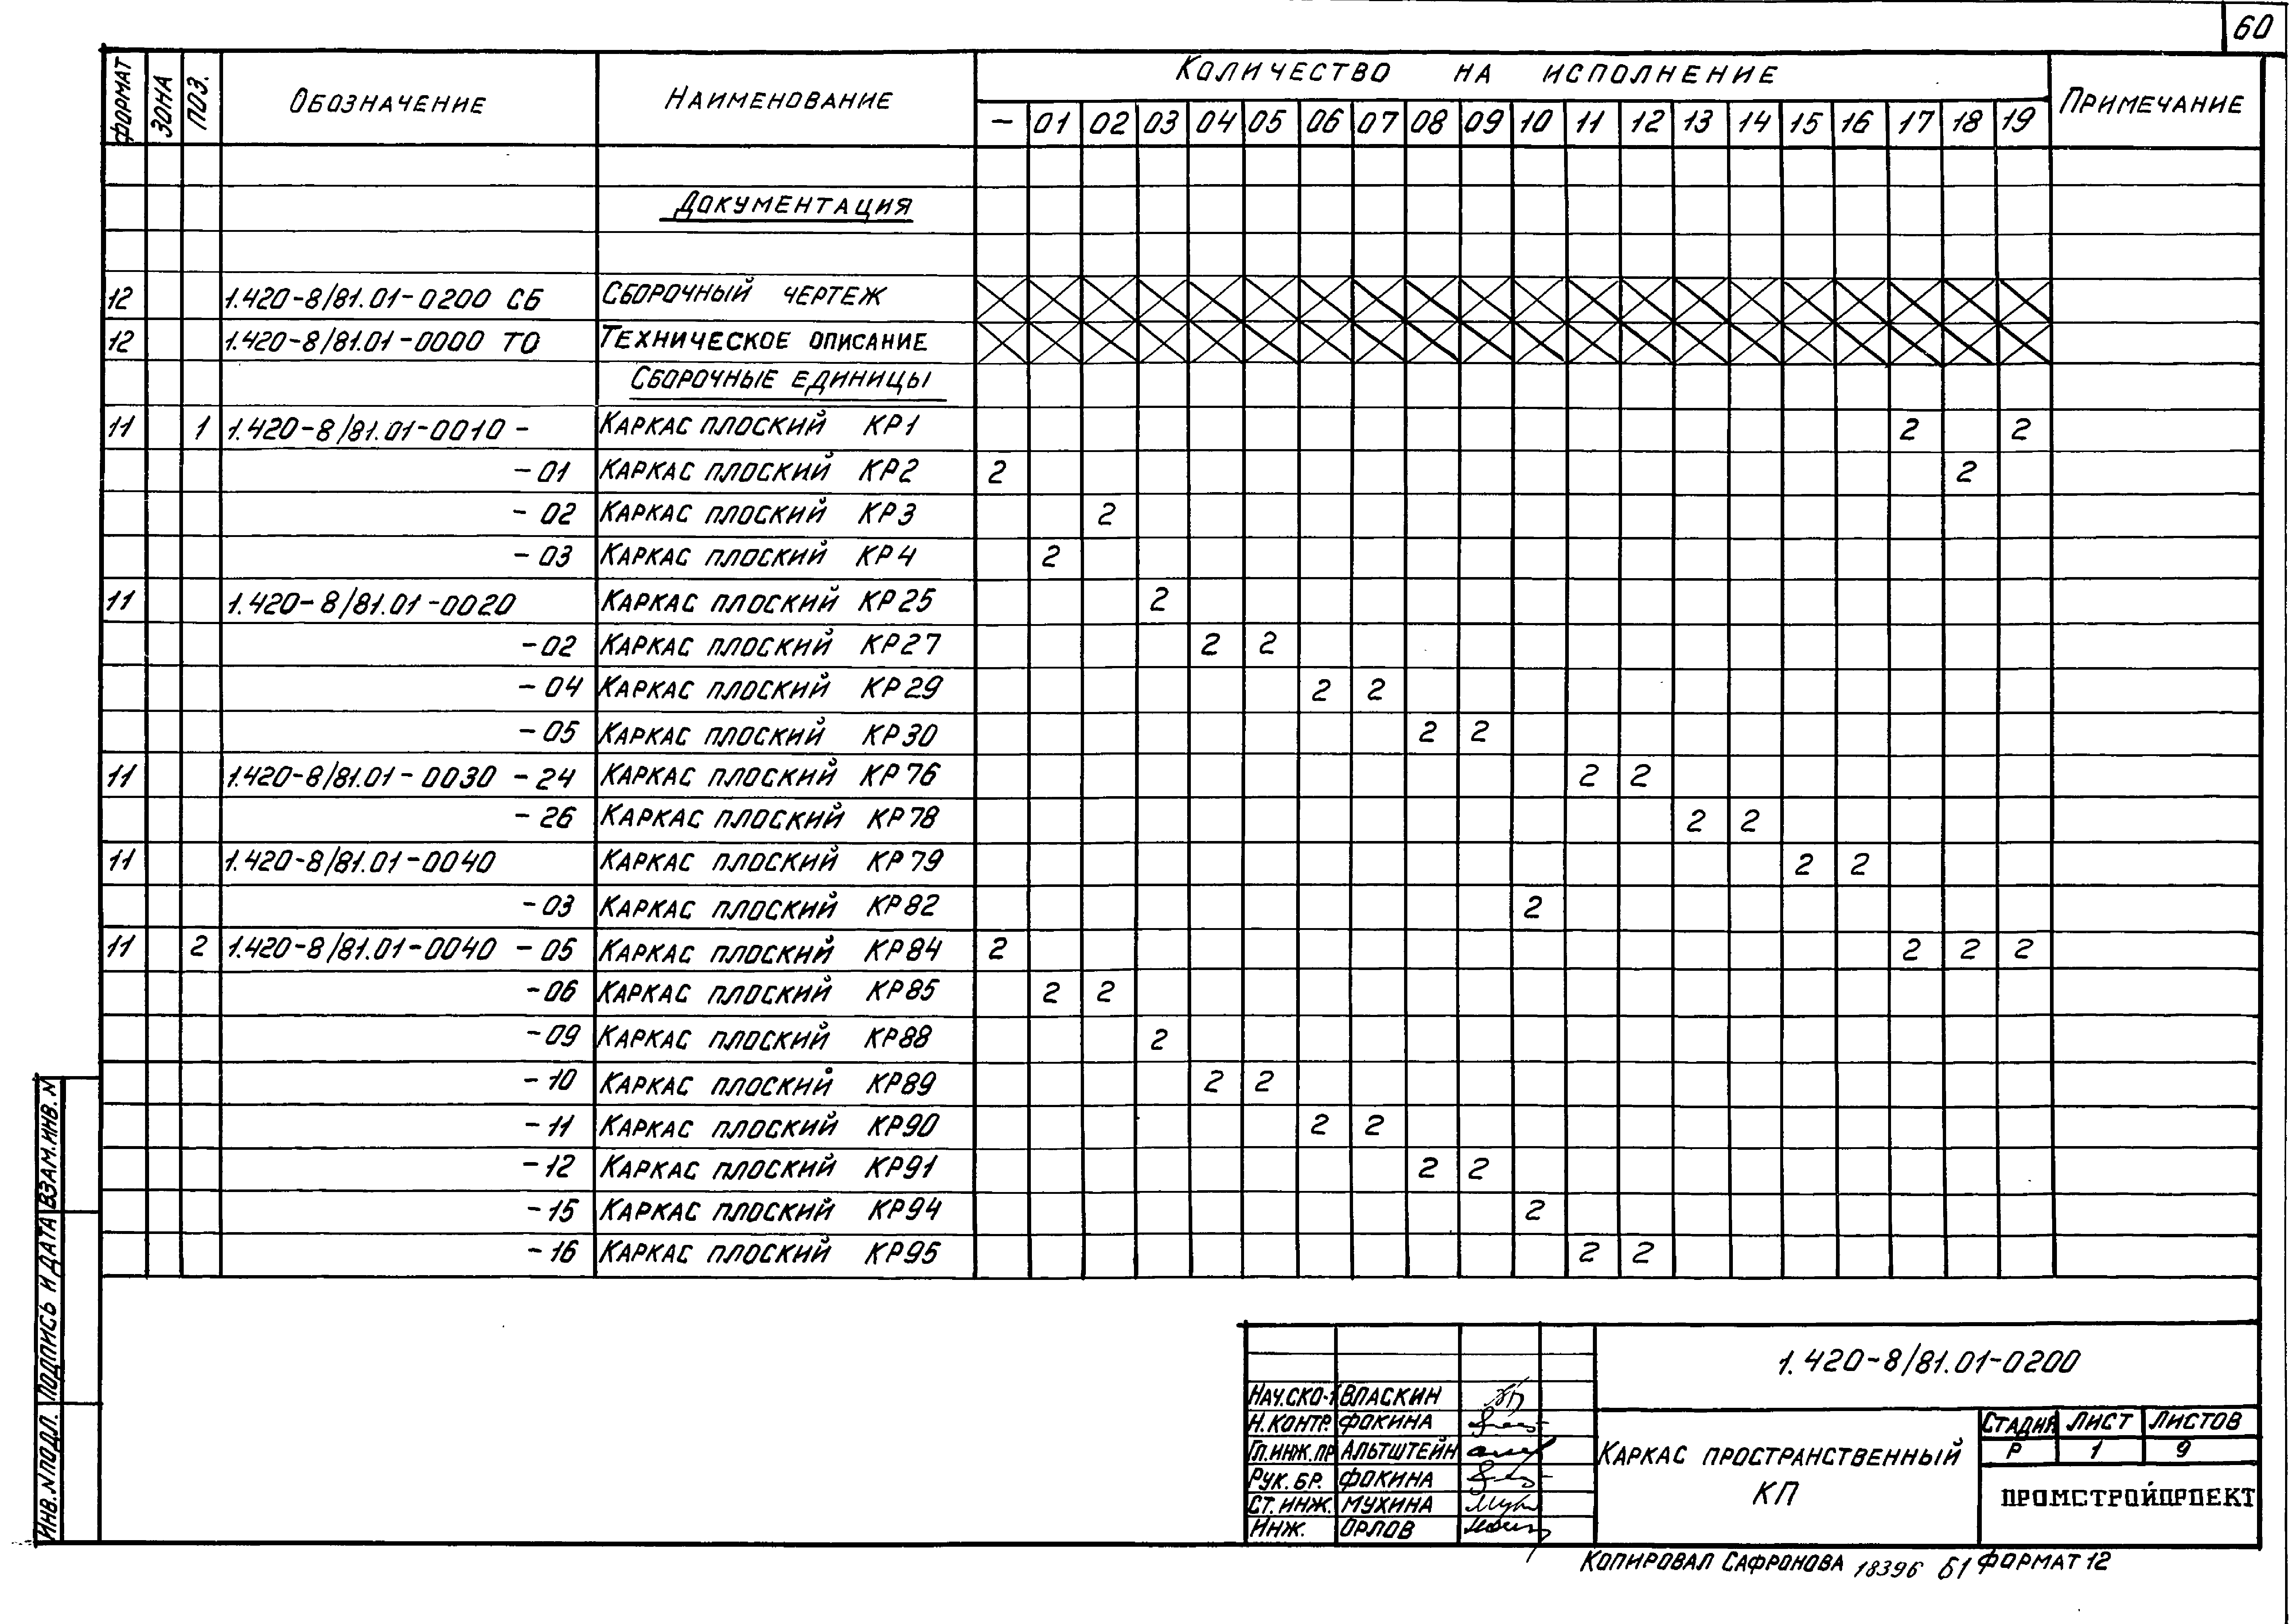 60
ФОРМАТ ЗОНА ПОЗ. ОБОЗНАЧЕНИЕ НАИМЕНОВАНИЕ КОЛИЧЕСТВО НА ИСПОЛНЕНИЕ ПРИМЕЧАНИЕ
– 01 02 03 04 05 06 07 08 09 10 11 12 13 14 15 16 17 18 19
ДОКУМЕНТАЦИЯ
12 1.420-8/81.01-0200 СБ СБОРОЧНЫЙ ЧЕРТЕЖ
12 1.420-8/81.01-0000 ТО ТЕХНИЧЕСКОЕ ОПИСАНИЕ
СБОРОЧНЫЕ ЕДИНИЦЫ
11 1 1.420-8/81.01-0010 - КАРКАС ПЛОСКИЙ КР1 2 2
-01 КАРКАС ПЛОСКИЙ КР2 2 2
-02 КАРКАС ПЛОСКИЙ КР3 2
-03 КАРКАС ПЛОСКИЙ КР4 2
11 1.420-8/81.01-0020 КАРКАС ПЛОСКИЙ КР25 2
-02 КАРКАС ПЛОСКИЙ КР27 2 2
-04 КАРКАС ПЛОСКИЙ КР29 2 2
-05 КАРКАС ПЛОСКИЙ КР30 2 2
11 1.420-8/81.01-0030 -24 КАРКАС ПЛОСКИЙ КР76 2 2
-26 КАРКАС ПЛОСКИЙ КР78 2 2
11 1.420-8/81.01-0040 КАРКАС ПЛОСКИЙ КР79 2 2
-03 КАРКАС ПЛОСКИЙ КР82 2
11 2 1.420-8/81.01-0040 -05 КАРКАС ПЛОСКИЙ КР84 2 2 2 2
-06 КАРКАС ПЛОСКИЙ КР85 2 2
-09 КАРКАС ПЛОСКИЙ КР88 2
-10 КАРКАС ПЛОСКИЙ КР89 2 2
-11 КАРКАС ПЛОСКИЙ КР90 2 2
-12 КАРКАС ПЛОСКИЙ КР91 2 2
-15 КАРКАС ПЛОСКИЙ КР94 2
-16 КАРКАС ПЛОСКИЙ КР95 2 2
ИНВ.№ПОДЛ. ПОДПИСЬ И ДАТА ВЗАМ.ИНВ.N
1.420-8/81.01-0200
НАЧ.СКО-1 ВЛАСКИН
Н.КОНТР. ФОКИНА
ГЛ.ИНЖ.ПР АЛЬТШТЕЙН
РУК.БР. ФОКИНА
СТ.ИНЖ. МУХИНА
ИНЖ. ОРЛОВ
КАРКАС ПРОСТРАНСТВЕННЫЙ
КП
СТАДИЯ ЛИСТ ЛИСТОВ
Р 1 9
ПРОМСТРОЙПРОЕКТ
КОПИРОВАЛ САФРОНОВА 18396 61 ФОРМАТ 12